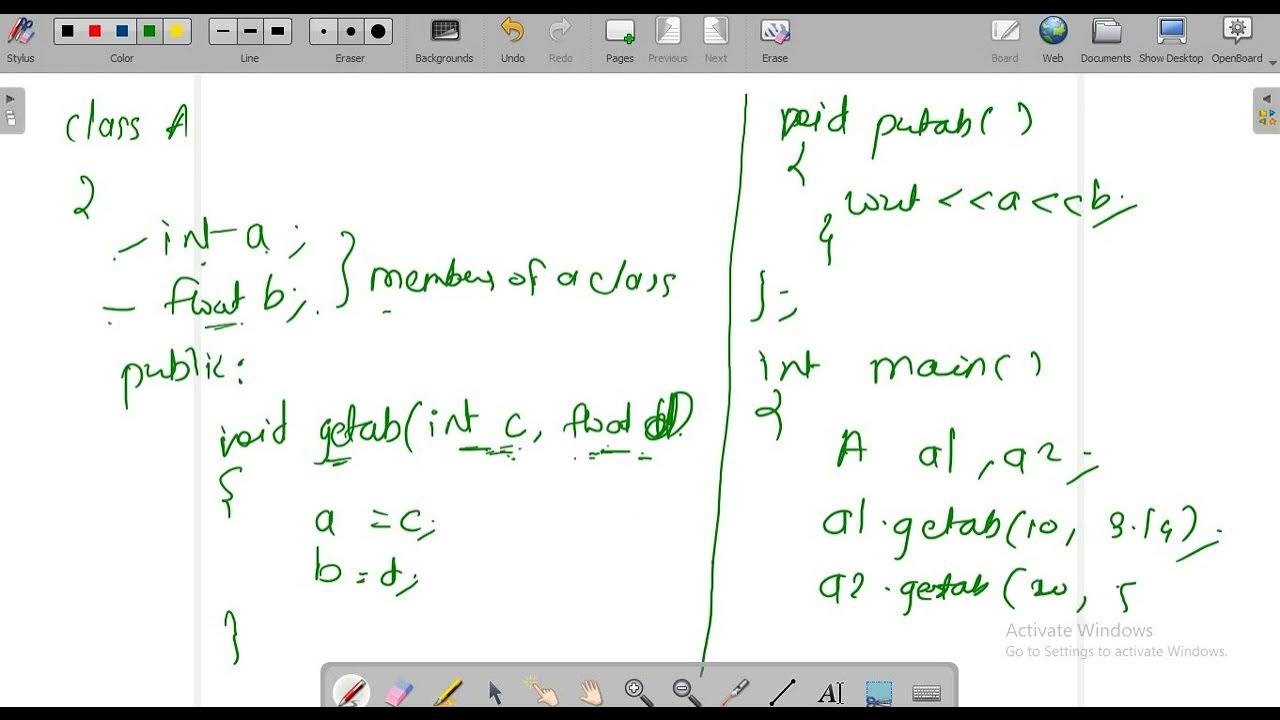 Stylus
Color
Line
Eraser
Backgrounds
Undo
Redo
Pages
Previous
Next
Erase
Board
Web
Documents
Show Desktop
OpenBoard
class A
{
- int a;
- float b;
} members of a class
public:
void getab(int c, float d)
{
a = c;
b = d;
}
void putab()
{
cout <<a<<b;
}
};
int main()
{
A a1, a2;
a1.getab(10, 3.14);
a2.getab(20, 5
Activate Windows
Go to Settings to activate Windows.